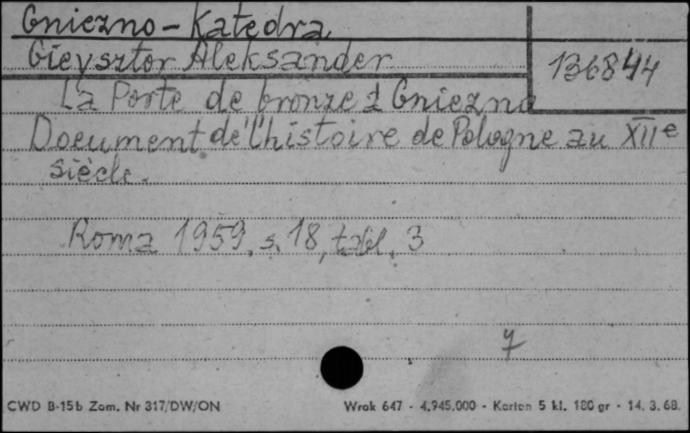 Gniezno - Katedra
Gieysztor Aleksander
136844
La Porte de bronze à Gniezno
Document de l'histoire de Pologne au XIIe
siècle.
Roma 1959, s. 18, tabl. 3
7
CWD B-15b Zam. Nr 317/DW/ON
Wrak 647 - 4.945.000 - Karton 5 kl. 180 gr - 14. 3. 68.